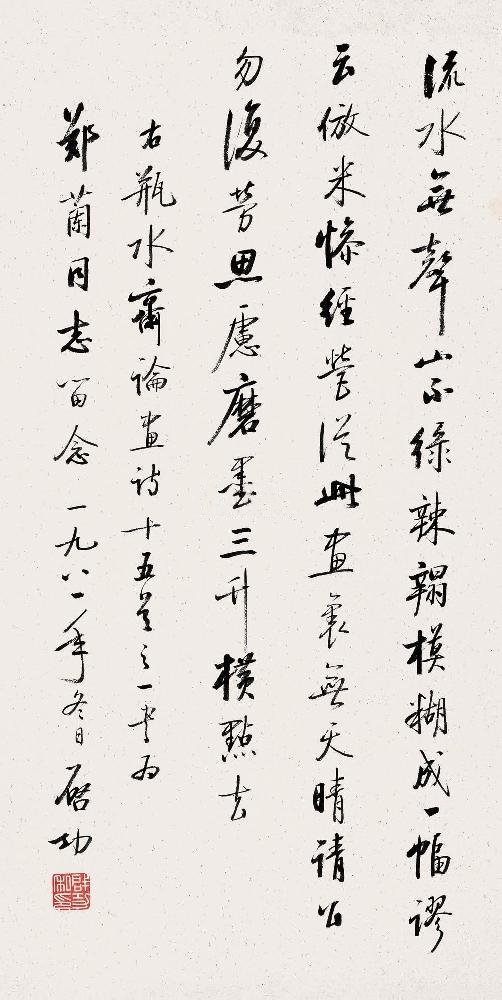 流水無聲山不綠辣模糊成一幅謬
云倣米慘經營從此畫裏無天晴請公
勿復勞思慮磨墨三升橫點去
右瓶水齋論畫詩十五首之一書为
鄭蘭同志留念一九八一年冬日啓功